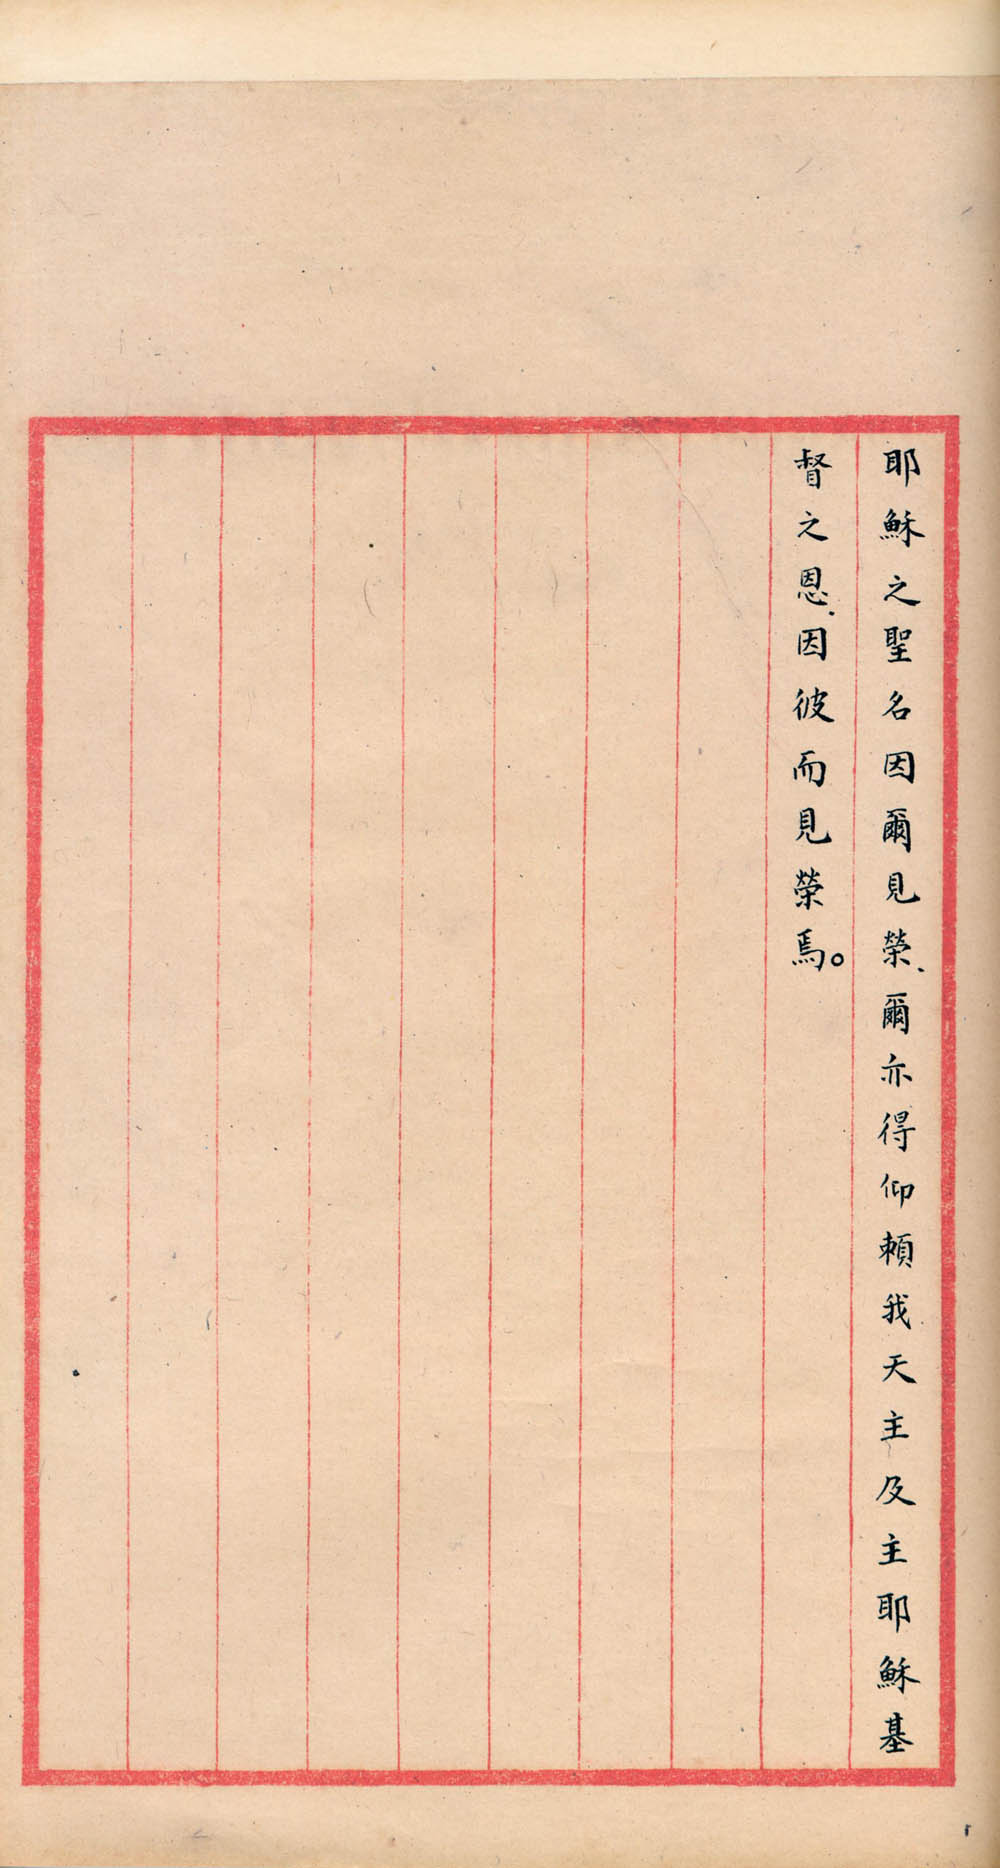 耶穌之聖名因爾見榮、爾亦得仰賴我天主及主耶穌基
督之恩、因彼而見榮焉。